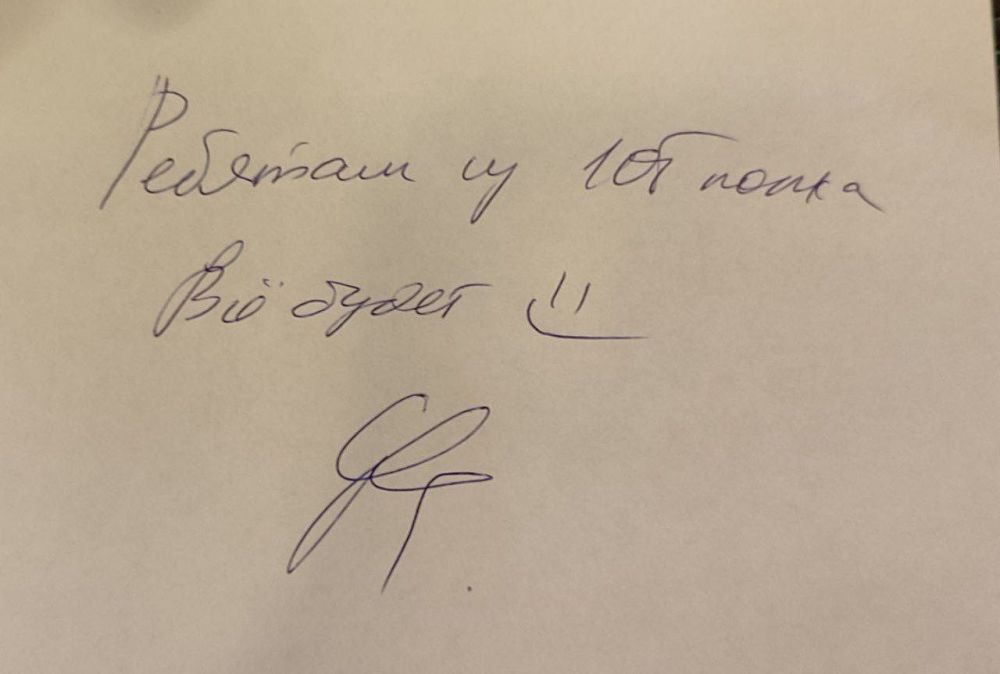 Ребятам из 10Б потока
Всё будет